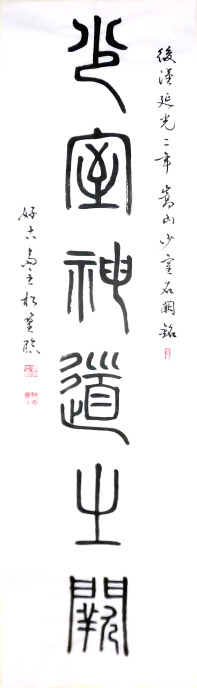 少室神道之闕
後漢延光二年嵩山少室石闕銘
好古